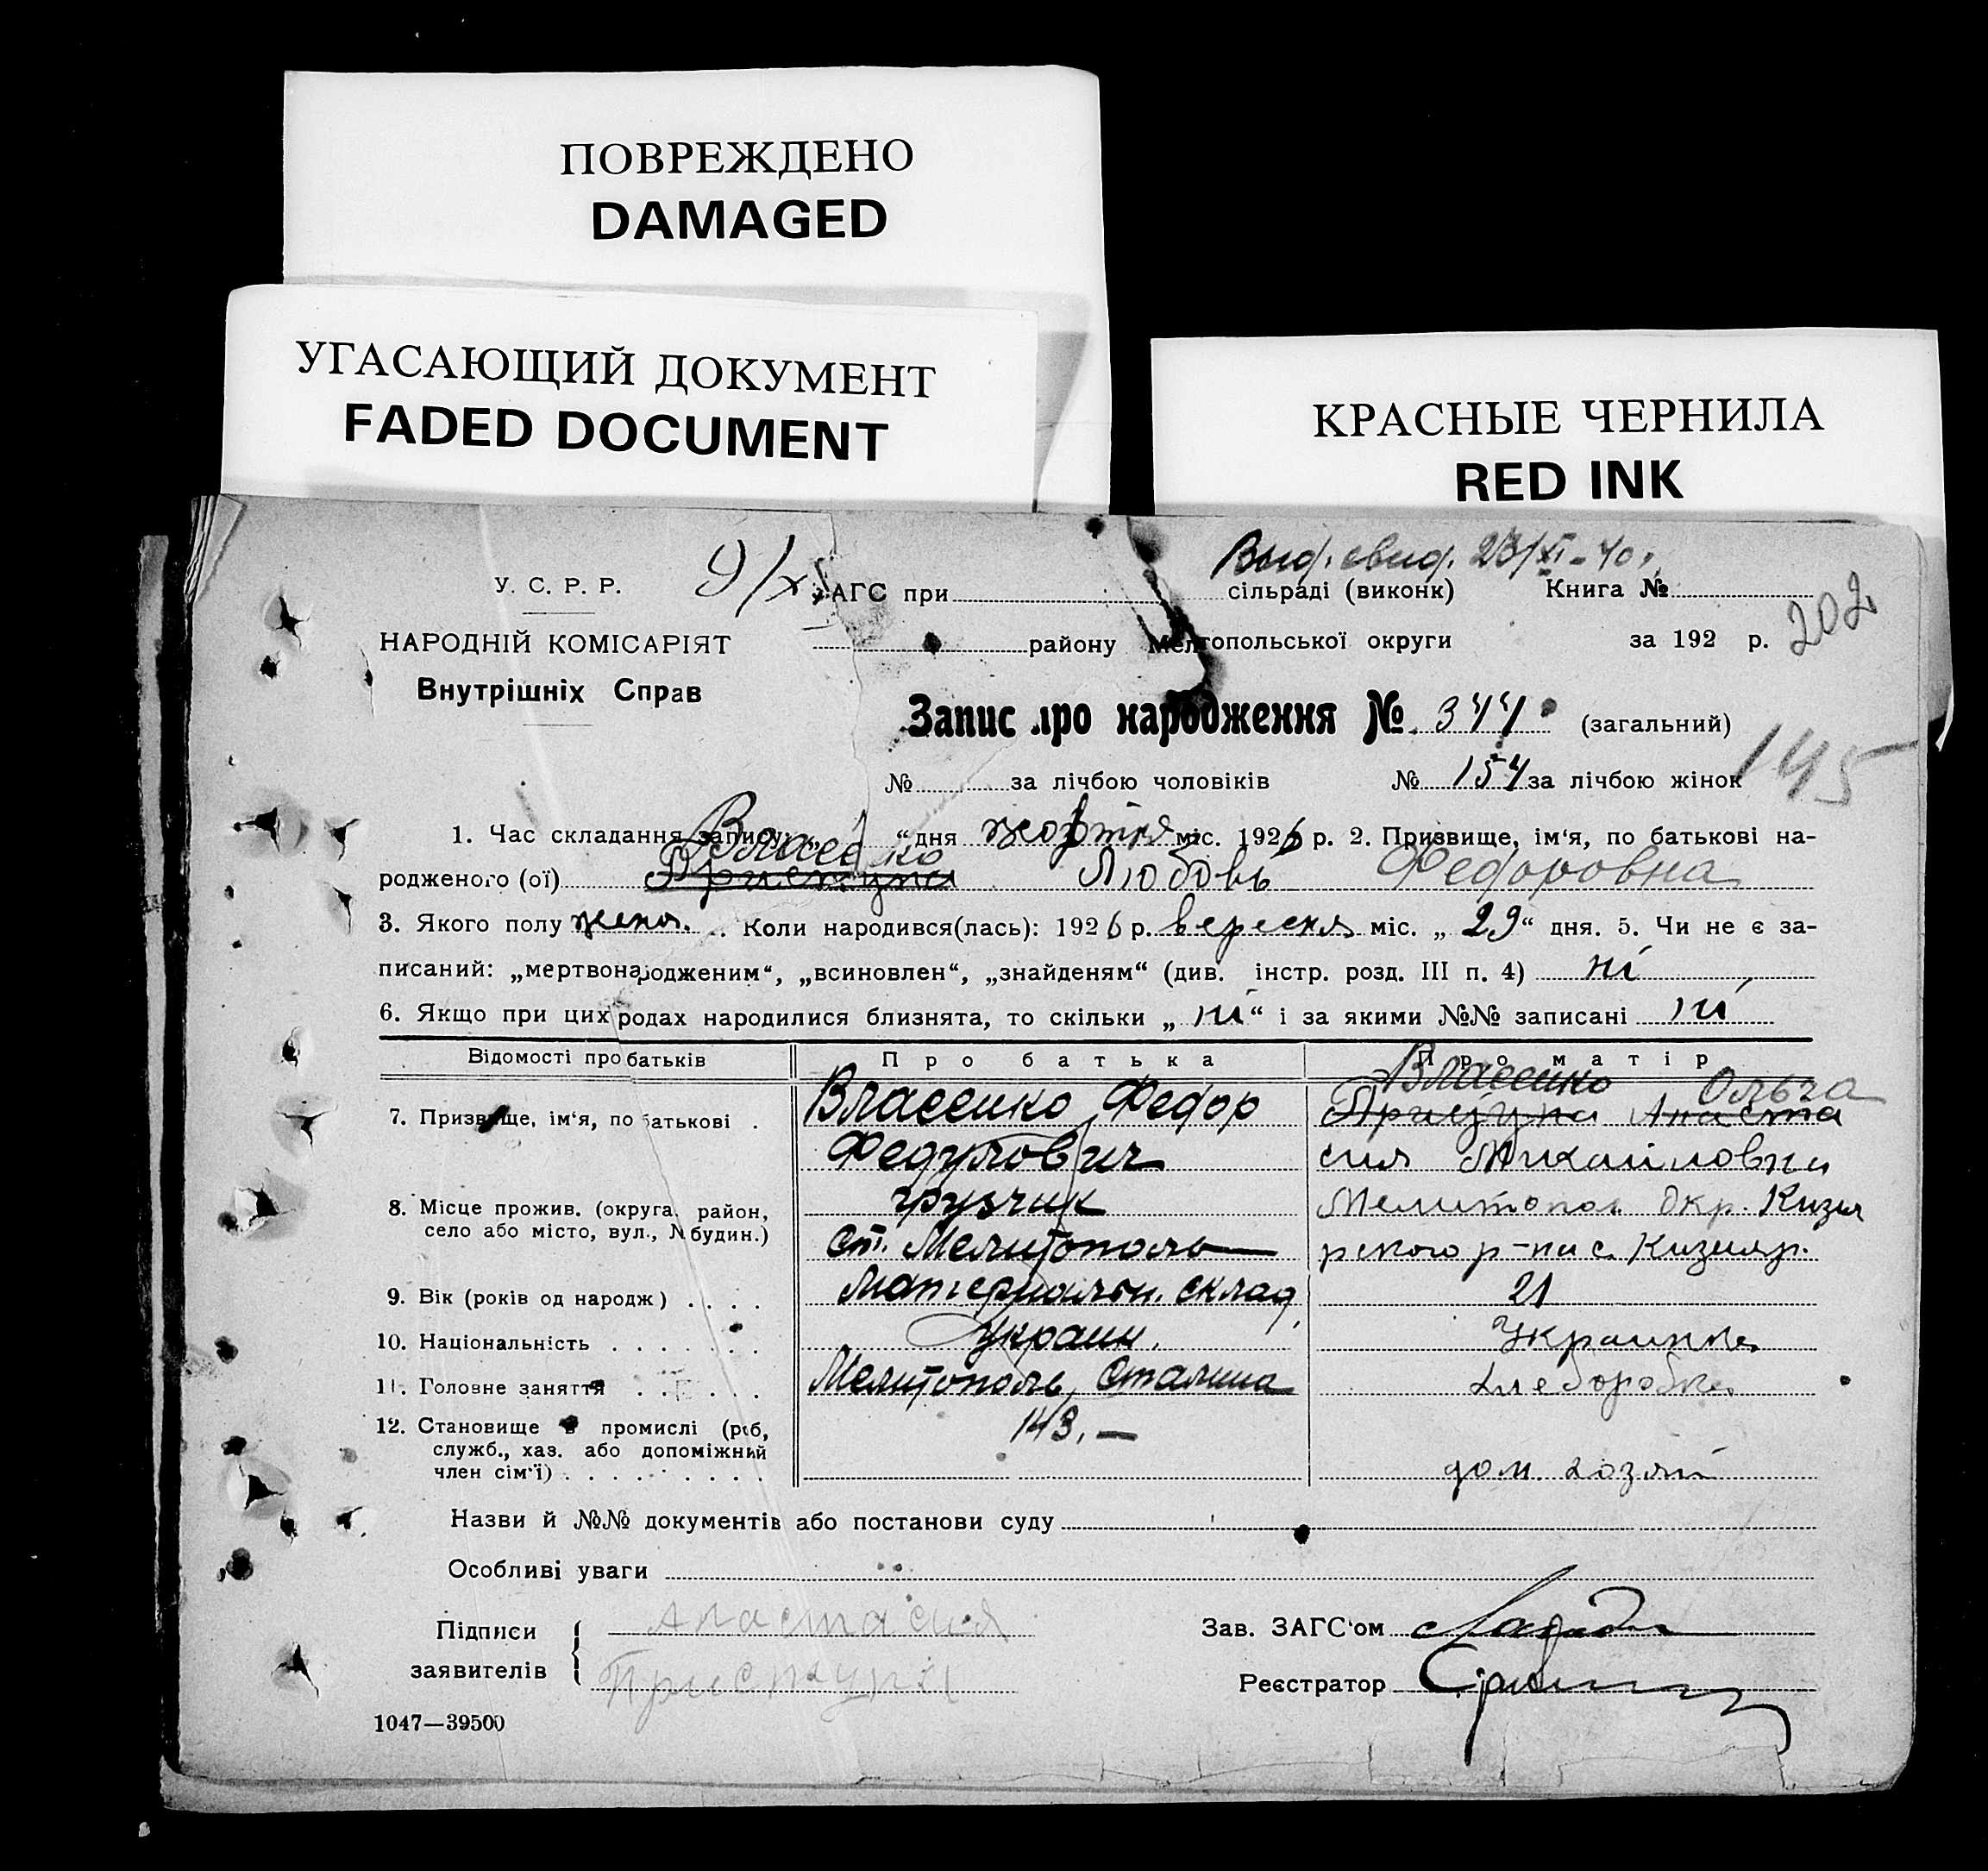 ПОВРЕЖДЕНО
DAMAGED
УГАСАЮЩИЙ ДОКУМЕНТ
FADED DOCUMENT
КРАСНЫЕ ЧЕРНИЛА
RED INK
Выд. свид. 23/XI-40г.
У. С. Р. Р. 9/X ЗАГС при сільраді (виконк) Книга №
202
НАРОДНІЙ КОМІСАРІЯТ району Мелітопольської округи за 192 р.
Внутрішніх Справ
Запис про народження № 344 (загальний)
145
№ за лічбою чоловіків № 154 за лічбою жінок
1. Час складання запису: „ “ дня жовтня міс. 1926 р. 2. Призвище, ім'я, по батькові на-
Власенко
родженого (ої) Приступа Любовь Федоровна
3. Якого полу жено. Коли народився(лась): 1926 р. вересня міс. „ 29 “ дня. 5. Чи не є за-
писаний: „мертвонародженим“, „всиновлен“, „знайденям“ (див. інстр. розд. III п. 4) ні
6. Якщо при цих родах народилися близнята, то скільки „ ні “ і за якими №№ записані ні
Відомості про батьків Про батька Про матір
Власенко Ольга
7. Призвище, ім'я, по батькові . Власенко Федор Приступа Анаста
Федулович сия Михайловна
8. Місце прожив. (округа, район, грузчик Мелитопол Окр. Кизия
село або місто, вул., № будин.) ст. Мелитополь рского р-на с. Кизияр.
9. Вік (років од народж) . . . . Материальн. склад 21
10. Національність . . . . . . . Украин. Украинка
11. Головне заняття . . . . . . Мелитополь, Сталина хлеборобка
12. Становище в промислі (роб, 143. —
служб., хаз. або допоміжний
член сім'ї) . . . . . . . . . дом. хозяй
Назви й №№ документів або постанови суду
Особливі уваги
Підписи Анастасия Зав. ЗАГС'ом
заявителів Приступа Реєстратор
1047—39500